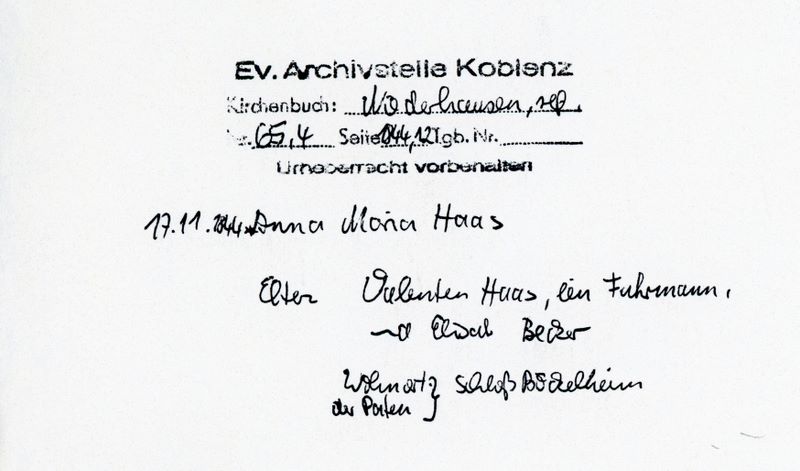 Ev. Archivstelle Koblenz
Kirchenbuch: Niederhausen, ref.
Nr. 65,4 Seite 1844,12 Tgb. Nr.
Urheberrecht vorbehalten
17.11.1844 Anna Maria Haas
Elter Valenten Haas, ein Fuhrmann.
Elisab Becker
Wohnort Schloß Böckelheim
der Paten